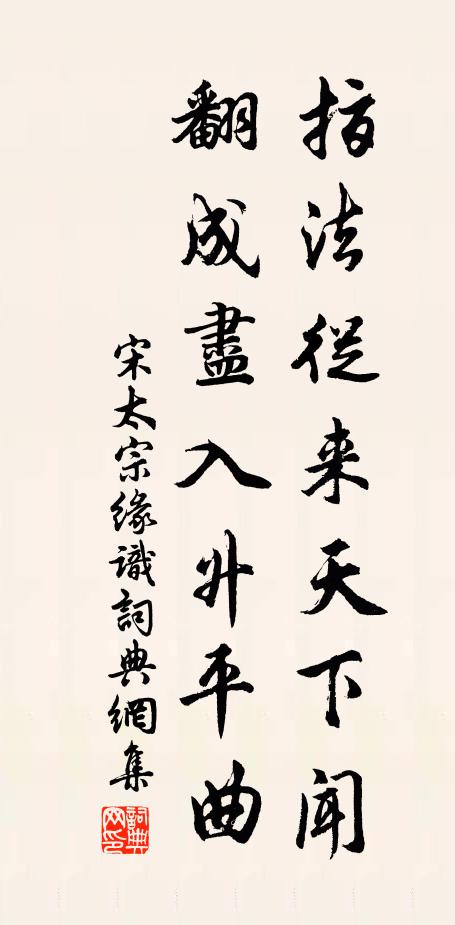 指法從来天下聞
翻成盡入升平曲
宋太宗緣識詞典網集
詞典網印